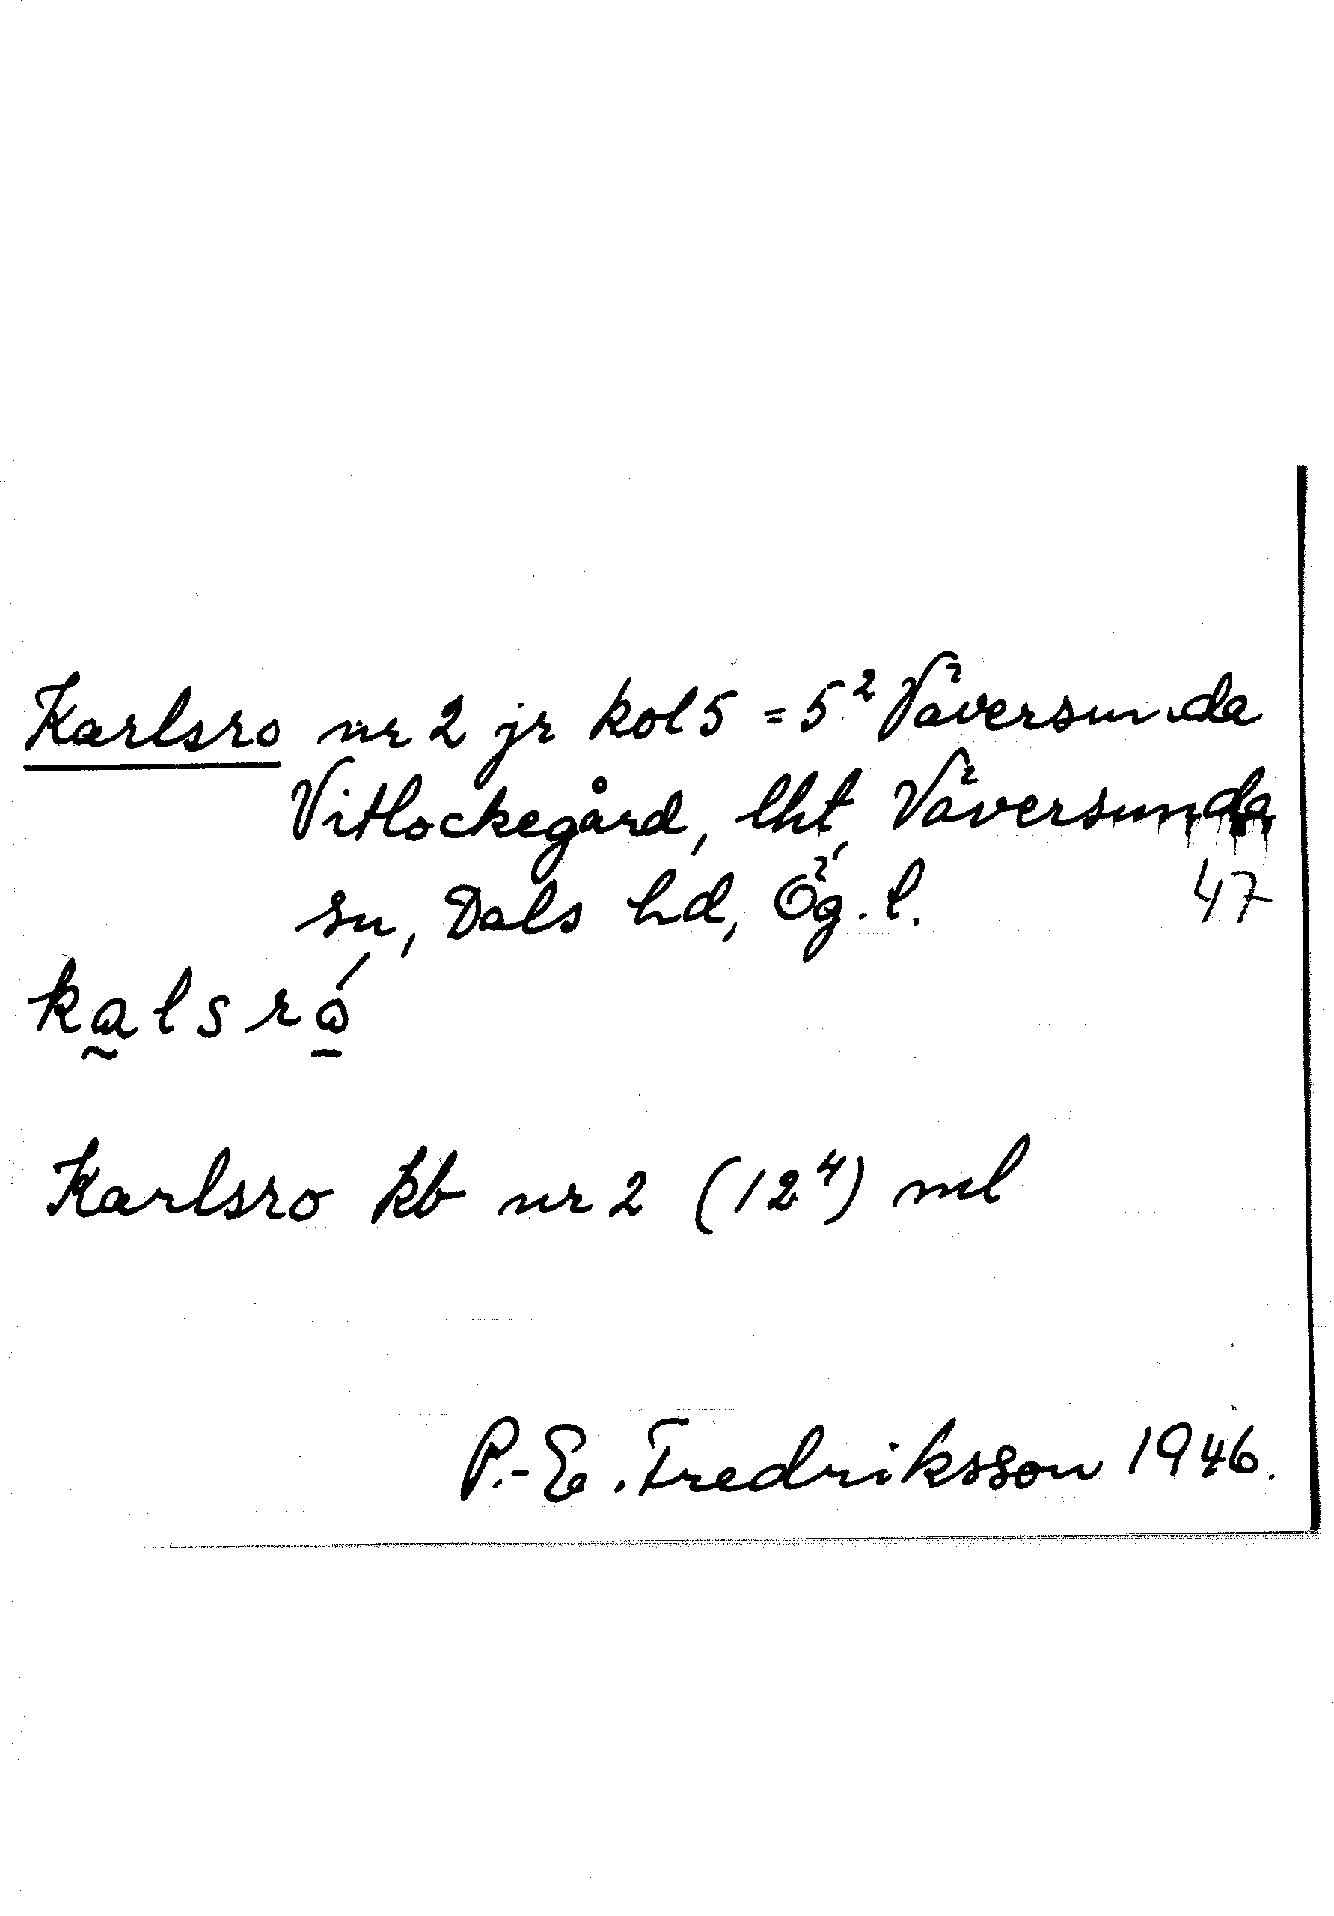 Karlsro nr 2 jr kol 5 = 5² Väversunda
Vitlockegård, lht, Väversunda
sn, Dals hd, Ög. l. 47
kalsró
Karlsro kb nr 2 (12⁴) ml
P.-E. Fredriksson 1946.